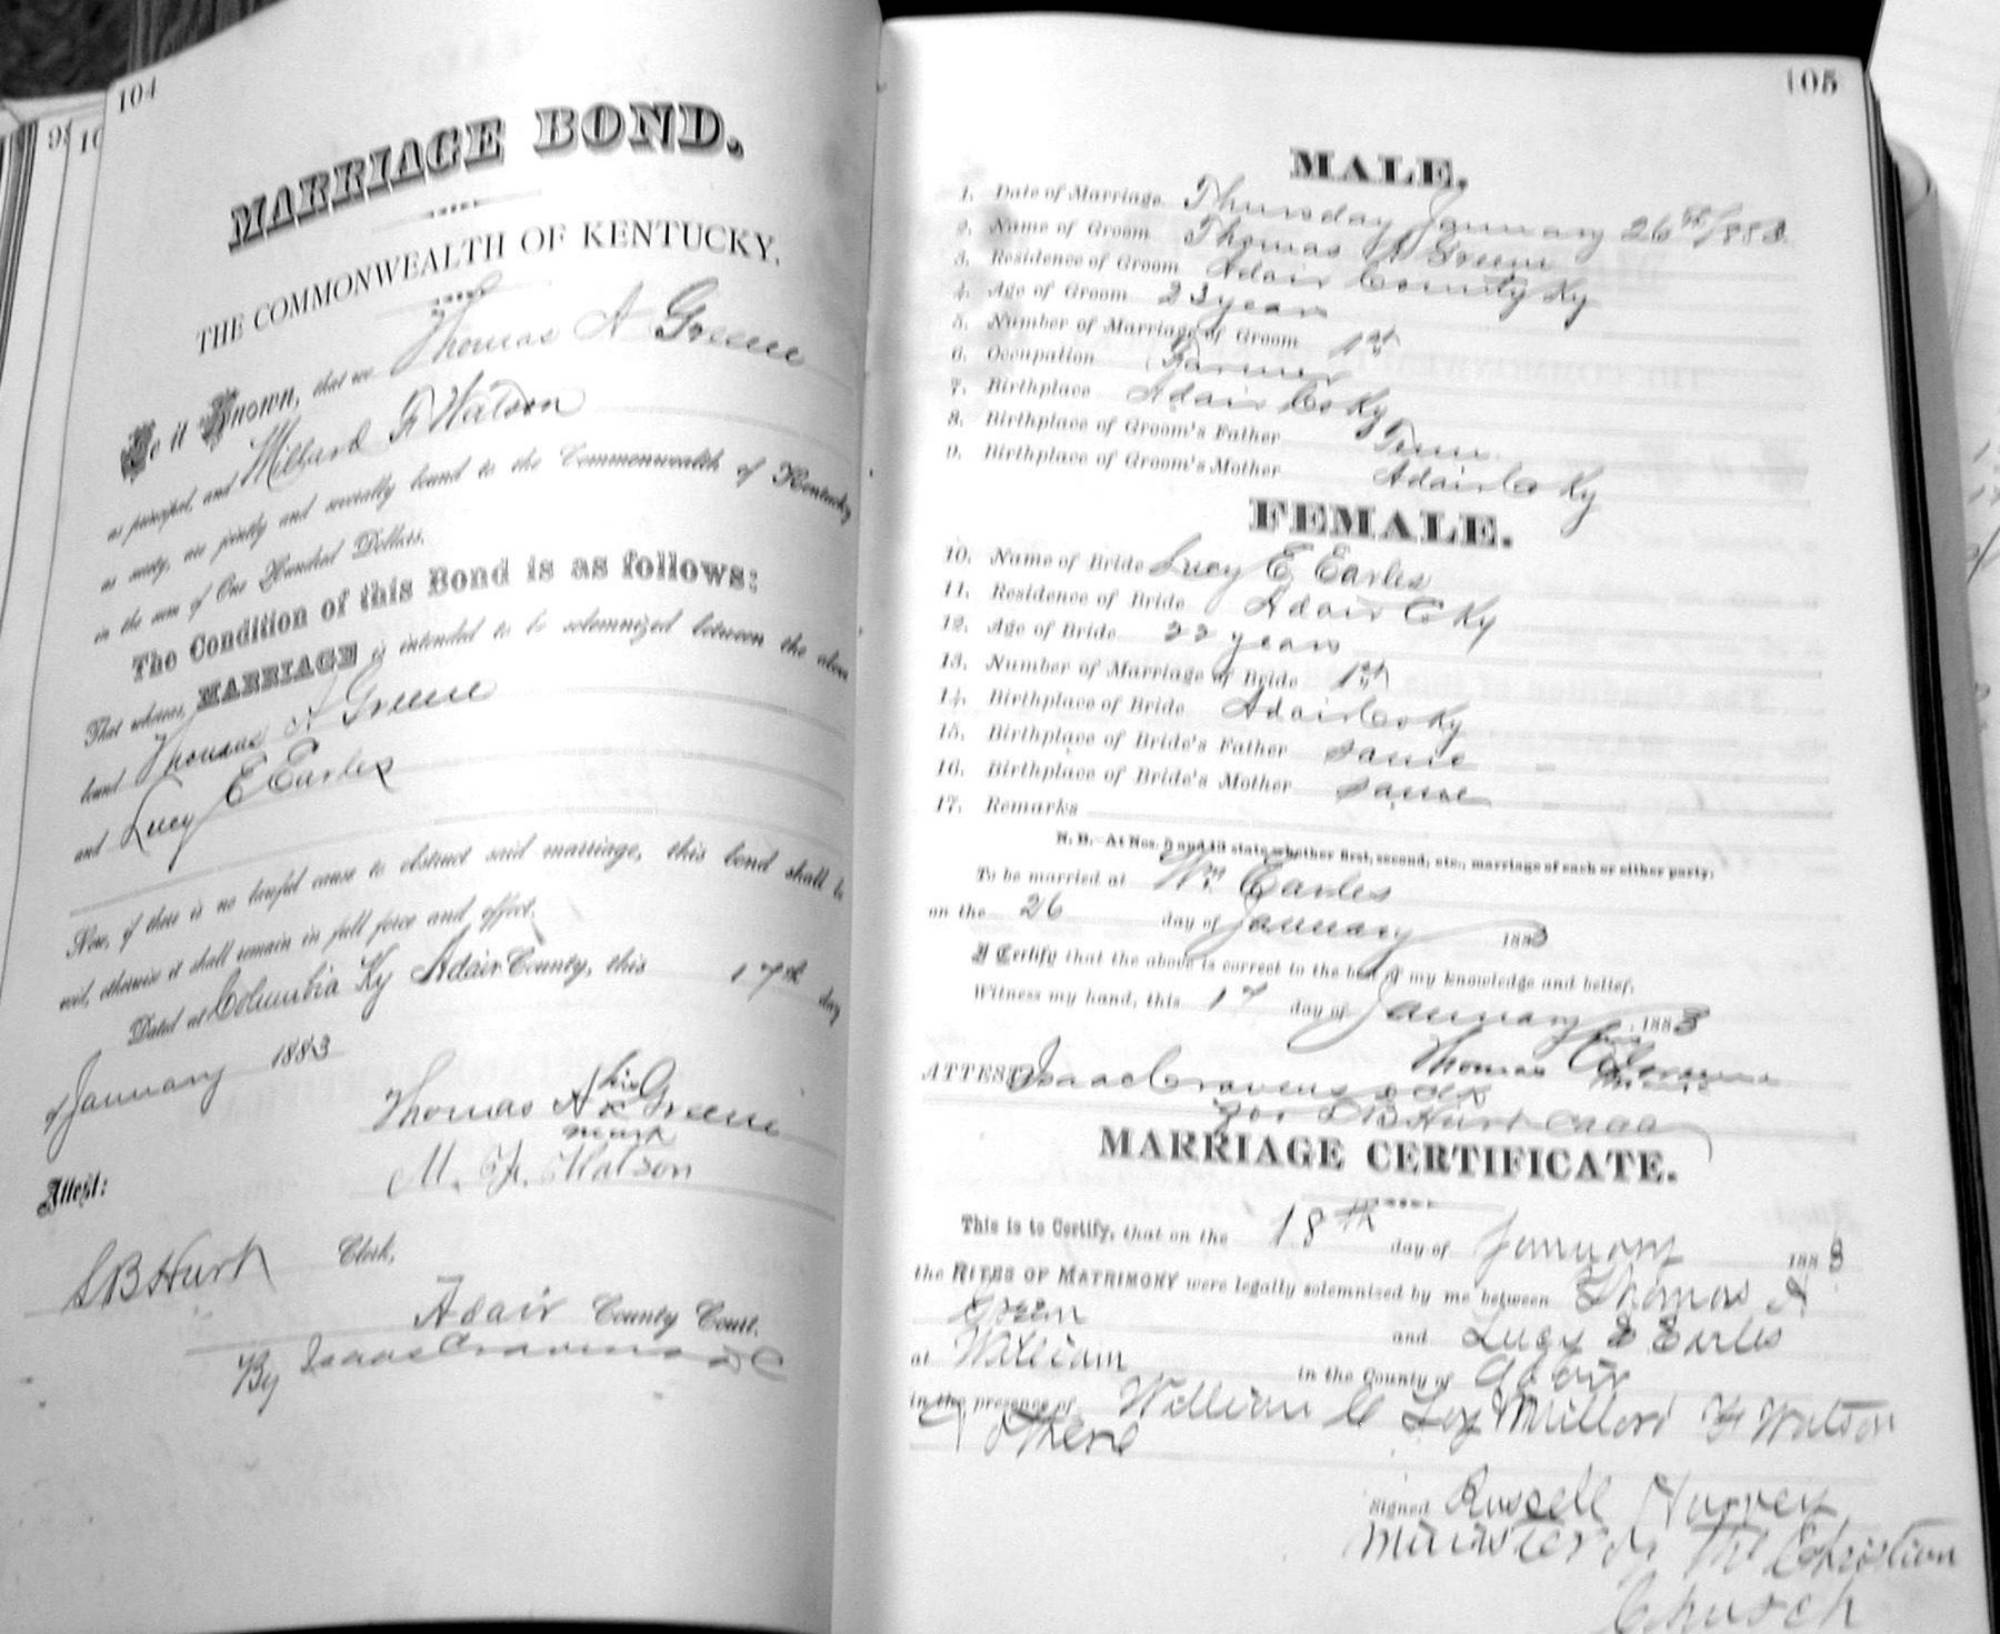 104
95
10
MARRIAGE BOND.
THE COMMONWEALTH OF KENTUCKY.
Be it Known, that we Thomas A Greene
as principal, and Millard F Watson
as surety, are jointly and severally bound to the Commonwealth of Kentucky
in the sum of One Hundred Dollars.
The Condition of this Bond is as follows:
That whereas, MARRIAGE is intended to be solemnized between the above
bound Thomas A Greene
and Lucy E Earles
Now, if there is no lawful cause to obstruct said marriage, this bond shall be
void, otherwise it shall remain in full force and effect.
Dated at Columbia Ky Adair County, this 17th day
of January 1883
Thomas A his x mark Greene
M. F. Watson
Attest:
S B Hurt Clerk,
Adair County Court.
By Isaac Cravens D C
105
MALE.
1. Date of Marriage Thursday January 26th 1883
2. Name of Groom Thomas A Greene
3. Residence of Groom Adair County Ky
4. Age of Groom 23 years
5. Number of Marriage of Groom 1st
6. Occupation Farmer
7. Birthplace Adair Co Ky
8. Birthplace of Groom's Father Tenn.
9. Birthplace of Groom's Mother Adair Co Ky
FEMALE.
10. Name of Bride Lucy E Earles
11. Residence of Bride Adair C Ky
12. Age of Bride 22 years
13. Number of Marriage of Bride 1st
14. Birthplace of Bride Adair Co Ky
15. Birthplace of Bride's Father same
16. Birthplace of Bride's Mother same
17. Remarks
N. B.—At Nos. 5 and 13 state whether first, second, etc., marriage of each or either party.
To be married at Wm. Earles
on the 26 day of January 1883
I Certify that the above is correct to the best of my knowledge and belief.
Witness my hand, this 17 day of January 1883
Thomas A his Greene
ATTEST Isaac Cravens
for S B Hurt
MARRIAGE CERTIFICATE.
This is to Certify, that on the 18th day of January 1883
the RITES OF MATRIMONY were legally solemnized by me between Thomas A
Green and Lucy E Earles
at William in the County of Adair
in the presence of William C Loy Millord F Watson
& others
Signed Russell Harvey
Minister of the Christian
Church